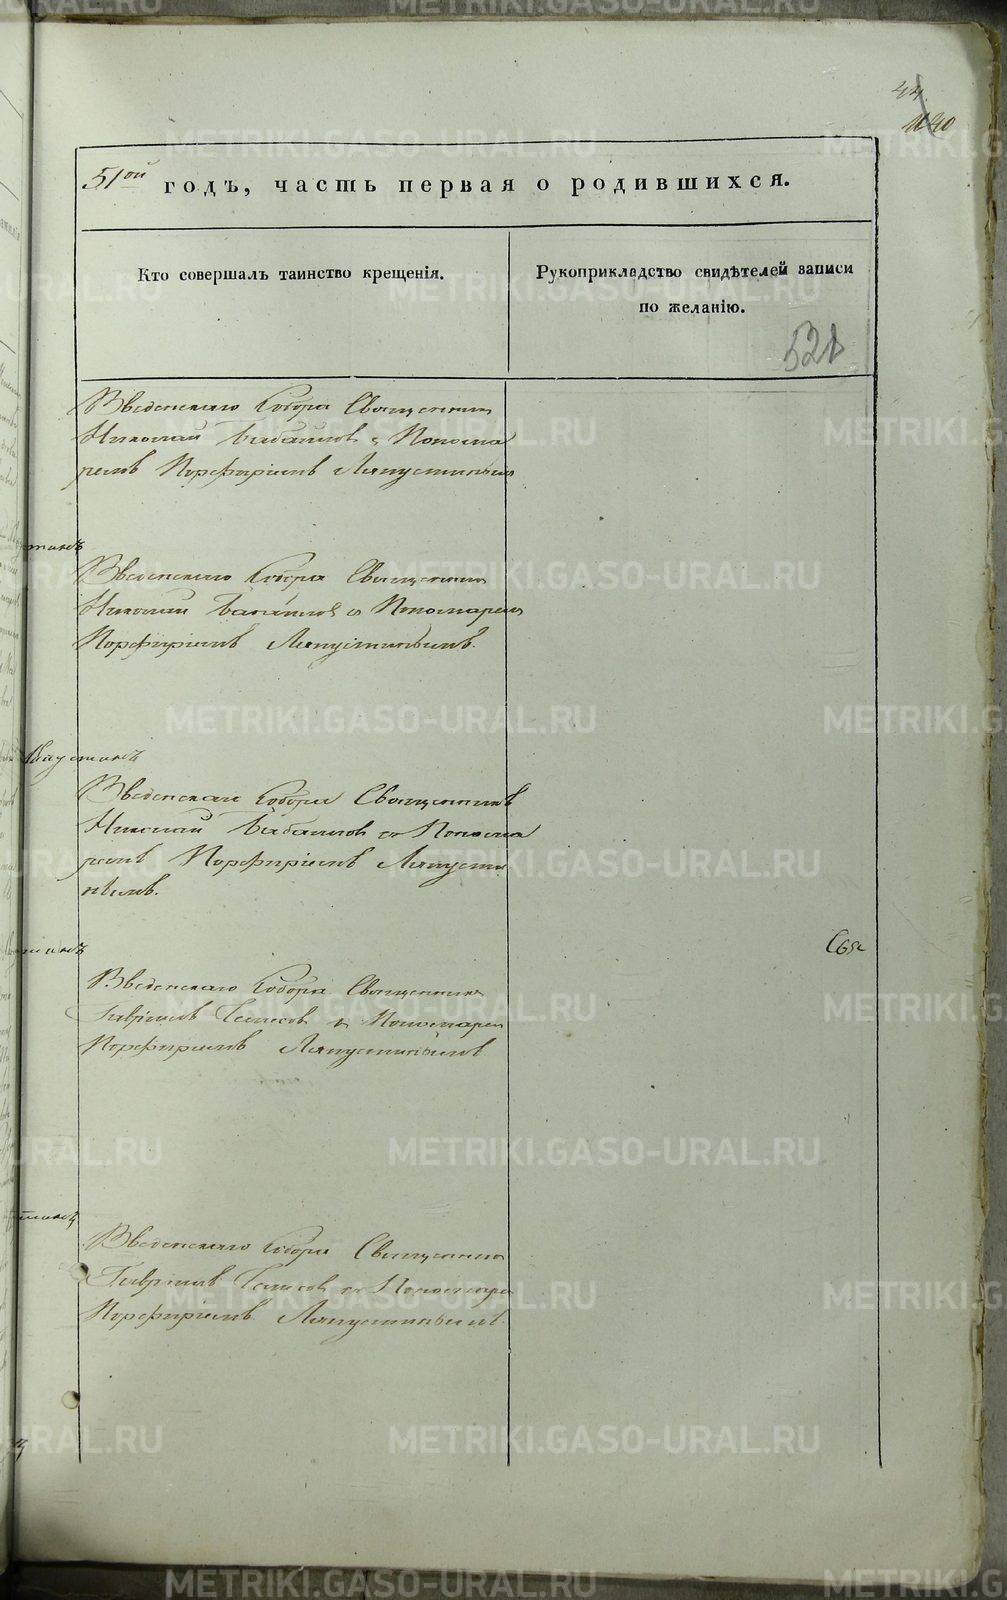 44
51ой годъ, часть первая о родившихся.
Кто совершалъ таинство крещенія.
Рукоприкладство свидѣтелей записи
по желанію.
521
Введенскаго Собора Священник
Николай Бабайлов с Понома
ремъ Порфиріемъ Ляпустиным
Введенскаго Собора Священник
Николай Бабайлов с Пономарем
Порфиріемъ Ляпустинымъ.
Введенскаго Собора Священникъ
Николай Бабайлов с Понома
ремъ Порфиріемъ Ляпусти
нымъ.
Введенскаго Собора Священник
Гавріилъ с Пономарем
Порфиріемъ Ляпустинымъ
Введенскаго Собора Священник
Гавріилъ с Пономаре
Порфиріемъ Ляпустинымъ.
METRIKI.GASO-URAL.RU